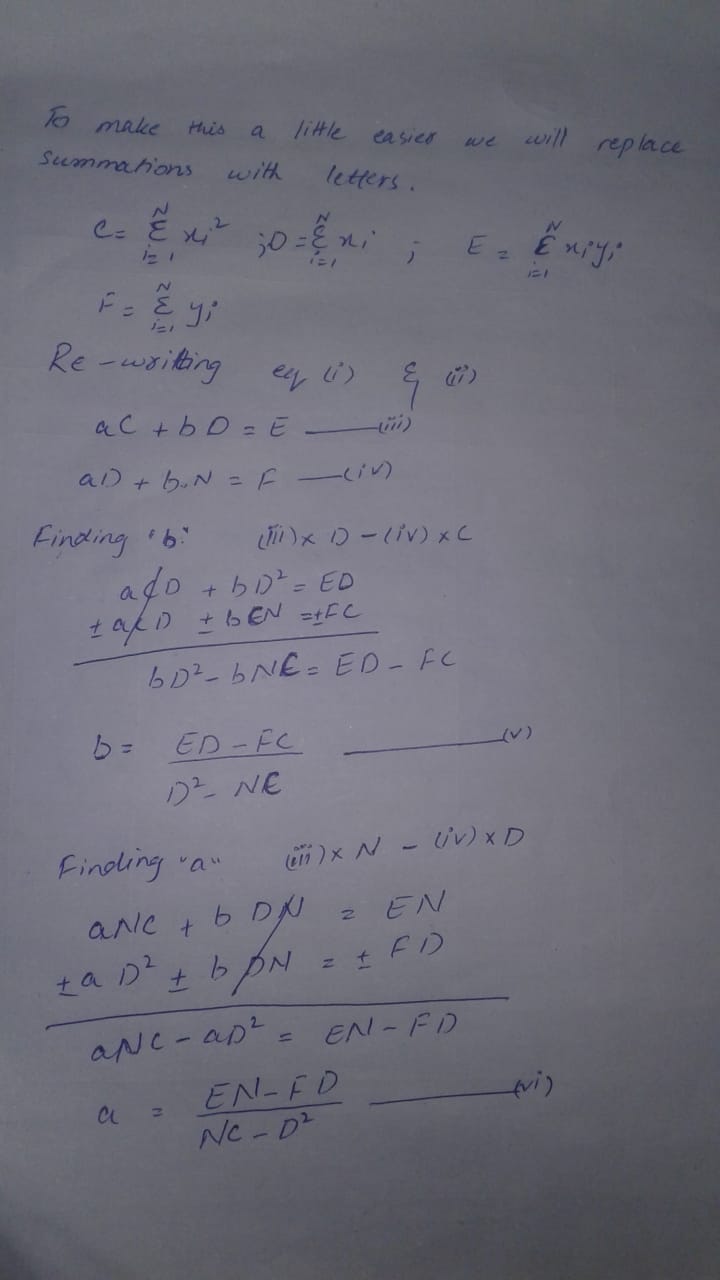 To make this a little easier we will replace
summations with letters.
C = Σ_{i=1}^{N} xᵢ² ; D = Σ_{i=1}^{N} xᵢ ; E = Σ_{i=1}^{N} xᵢyᵢ
F = Σ_{i=1}^{N} yᵢ
Re-writting eq (i) & (ii)
aC + bD = E —(iii)
aD + b.N = F —(iv)
Finding "b" (iii) x D - (iv) x C
aCD + bD² = ED
± aCD ± bCN = ± FC
bD² - bNC = ED - FC
b = (ED - FC) / (D² - NC) —(v)
Finding "a" (iii) x N - (iv) x D
aNC + bDN = EN
± aD² ± bDN = ± FD
aNC - aD² = EN - FD
a = (EN - FD) / (NC - D²) —(vi)